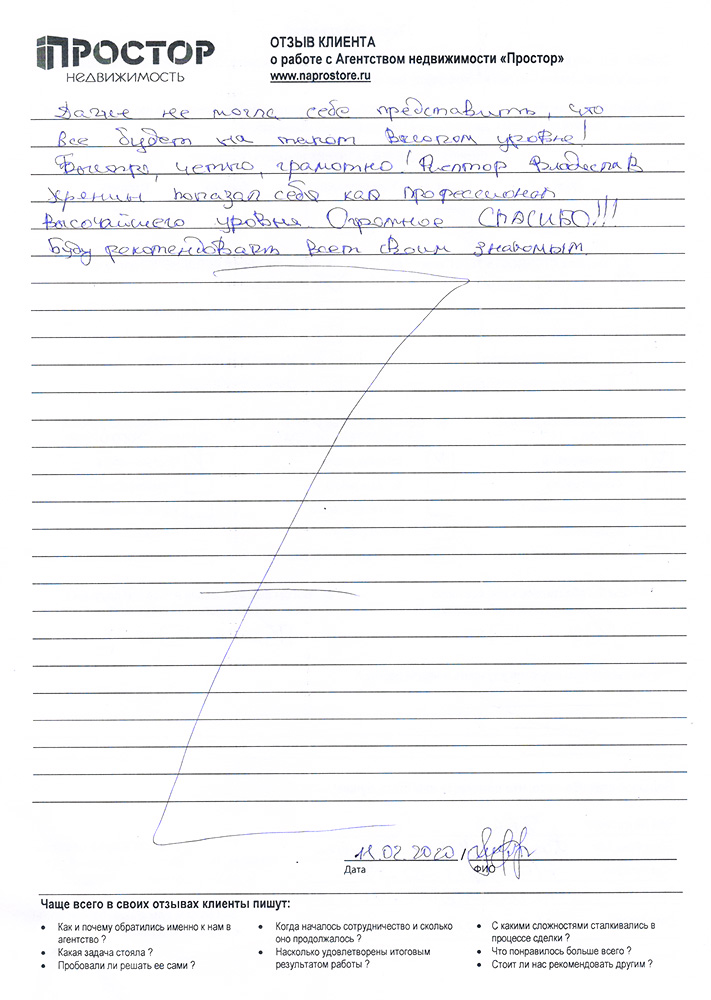 ПРОСТОР
НЕДВИЖИМОСТЬ
ОТЗЫВ КЛИЕНТА
о работе с Агентством недвижимости «Простор»
www.naprostore.ru
Даже не могла себе представить, что
все будет на таком высоком уровне!
Быстро, четко, грамотно! Риэлтор Владислав
показал себя как профессионал
высочайшего уровня. Огромное СПАСИБО!!!
Буду рекомендовать всем своим знакомым.
02.2020
Дата
ФИО
Чаще всего в своих отзывах клиенты пишут:
• Как и почему обратились именно к нам в
агентство ?
• Какая задача стояла ?
• Пробовали ли решать ее сами ?
• Когда началось сотрудничество и сколько
оно продолжалось ?
• Насколько удовлетворены итоговым
результатом работы ?
• С какими сложностями сталкивались в
процессе сделки ?
• Что понравилось больше всего ?
• Стоит ли нас рекомендовать другим ?